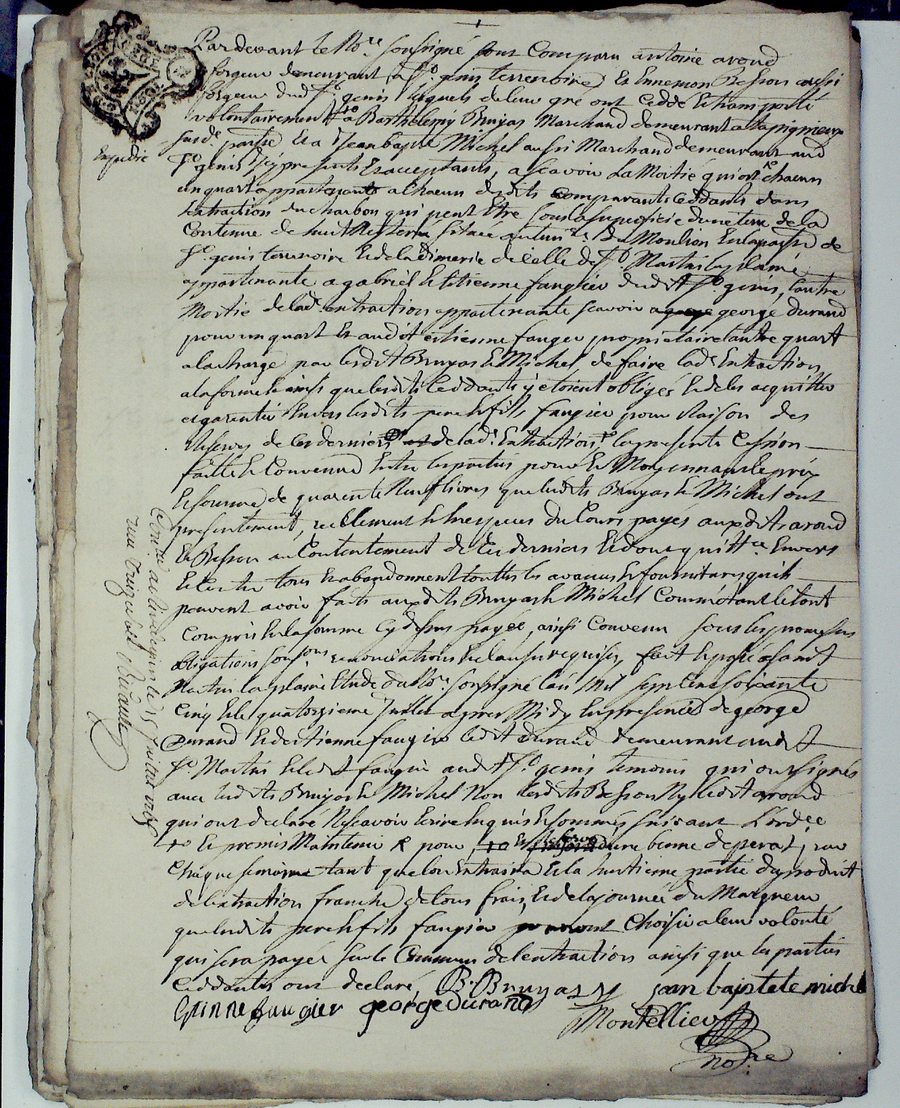 Pardevant le No.re soussigné sont comparu antoine avond
forgeur demeurant a St genis terrenoire, et Ennemon Besson aussi
forgeur dud St genis lesquels de leur gré ont ceddé et transporté
volontairement a Barthelemy Bruyas Marchand demeurant a
susd. partie et a Sr Jean baptte Michel aussi Marchand demeurant aud
Expedié
St genis icy presents et acceptants, a scavoir La Moitié qui est chacun
un quart appartenante a chacun desdits comparants ceddants dans
lextraction du charbon qui peut être sous la superficie dune terre de la
Contenue de huit située au lieu de Moulion En la paroisse de
St genis terrenoire et de la dimerie de celle de St Martin la plaine
appartenante a gabriel et etienne faugier dudit St genis, l'autre
Moitié de lad. extraction appartenante scavoir a george durand
pour un quart et audit estienne faugier proprietaire lautre quart
a la charge par lesdits Bruyas et Michel de faire lad. Extraction
a la forme et ainsi que lesdits Ceddants y etoient obligés et de les acquitter
et garentir Envers lesdits pere et fils faugier pour Raison des
Reserves de ces derniers de lad. Extraction, la presente Cession
faitte et Convenue Entre les parties pour et Moyennant le prix
et somme de quarente Neuf livres que lesdits Bruyas et Michel ont
presentement, reellement et en especes du Cours payés auxdits avond
et Besson au Contentement de ces derniers et dont quittes Envers
et Contre tous et abandonnent touttes les avances et fournitures quils
peuvent avoir faits auxdits Bruyas et Michel Comme étant le tout
compris En la somme cy dessus payée, ainsi Convenu sous les promesses
obligations soumons renonciations et clauses requises, fait et passé a Saint
Martin la plaine Etude du No.re soussigné lan Mil sept cent soixante
Cinq et le quatorzieme Juillet apres Midy En presence de george
Durand et de etienne faugier ledit durand demeurant audit
St Martin et ledit faugier audit St genis temoins qui ont signés
avec lesdits Bruyas et Michel Non lesdits Besson Ny ledit avond
qui ont declaré Ne scavoir Ecrire Enquis et sommés suivant L'ordce
et le premier Maintenir & pour dune benne de perat, par
Chaque semaine tant que lon Extraira et la huitieme partie du produit
de l'extraction franche de tous frais, et de la journée du Marqueur
que lesdits pere et fils faugier choisir a leur volonté
qui sera payée sur le Commun de lextractions ainsi que les parties
Ceddantes ont declaré, B. Bruyas jean baptete michel
Etienne faugier george durand
Montellier
No.re
Con.lé a le 15 Juillet 1765